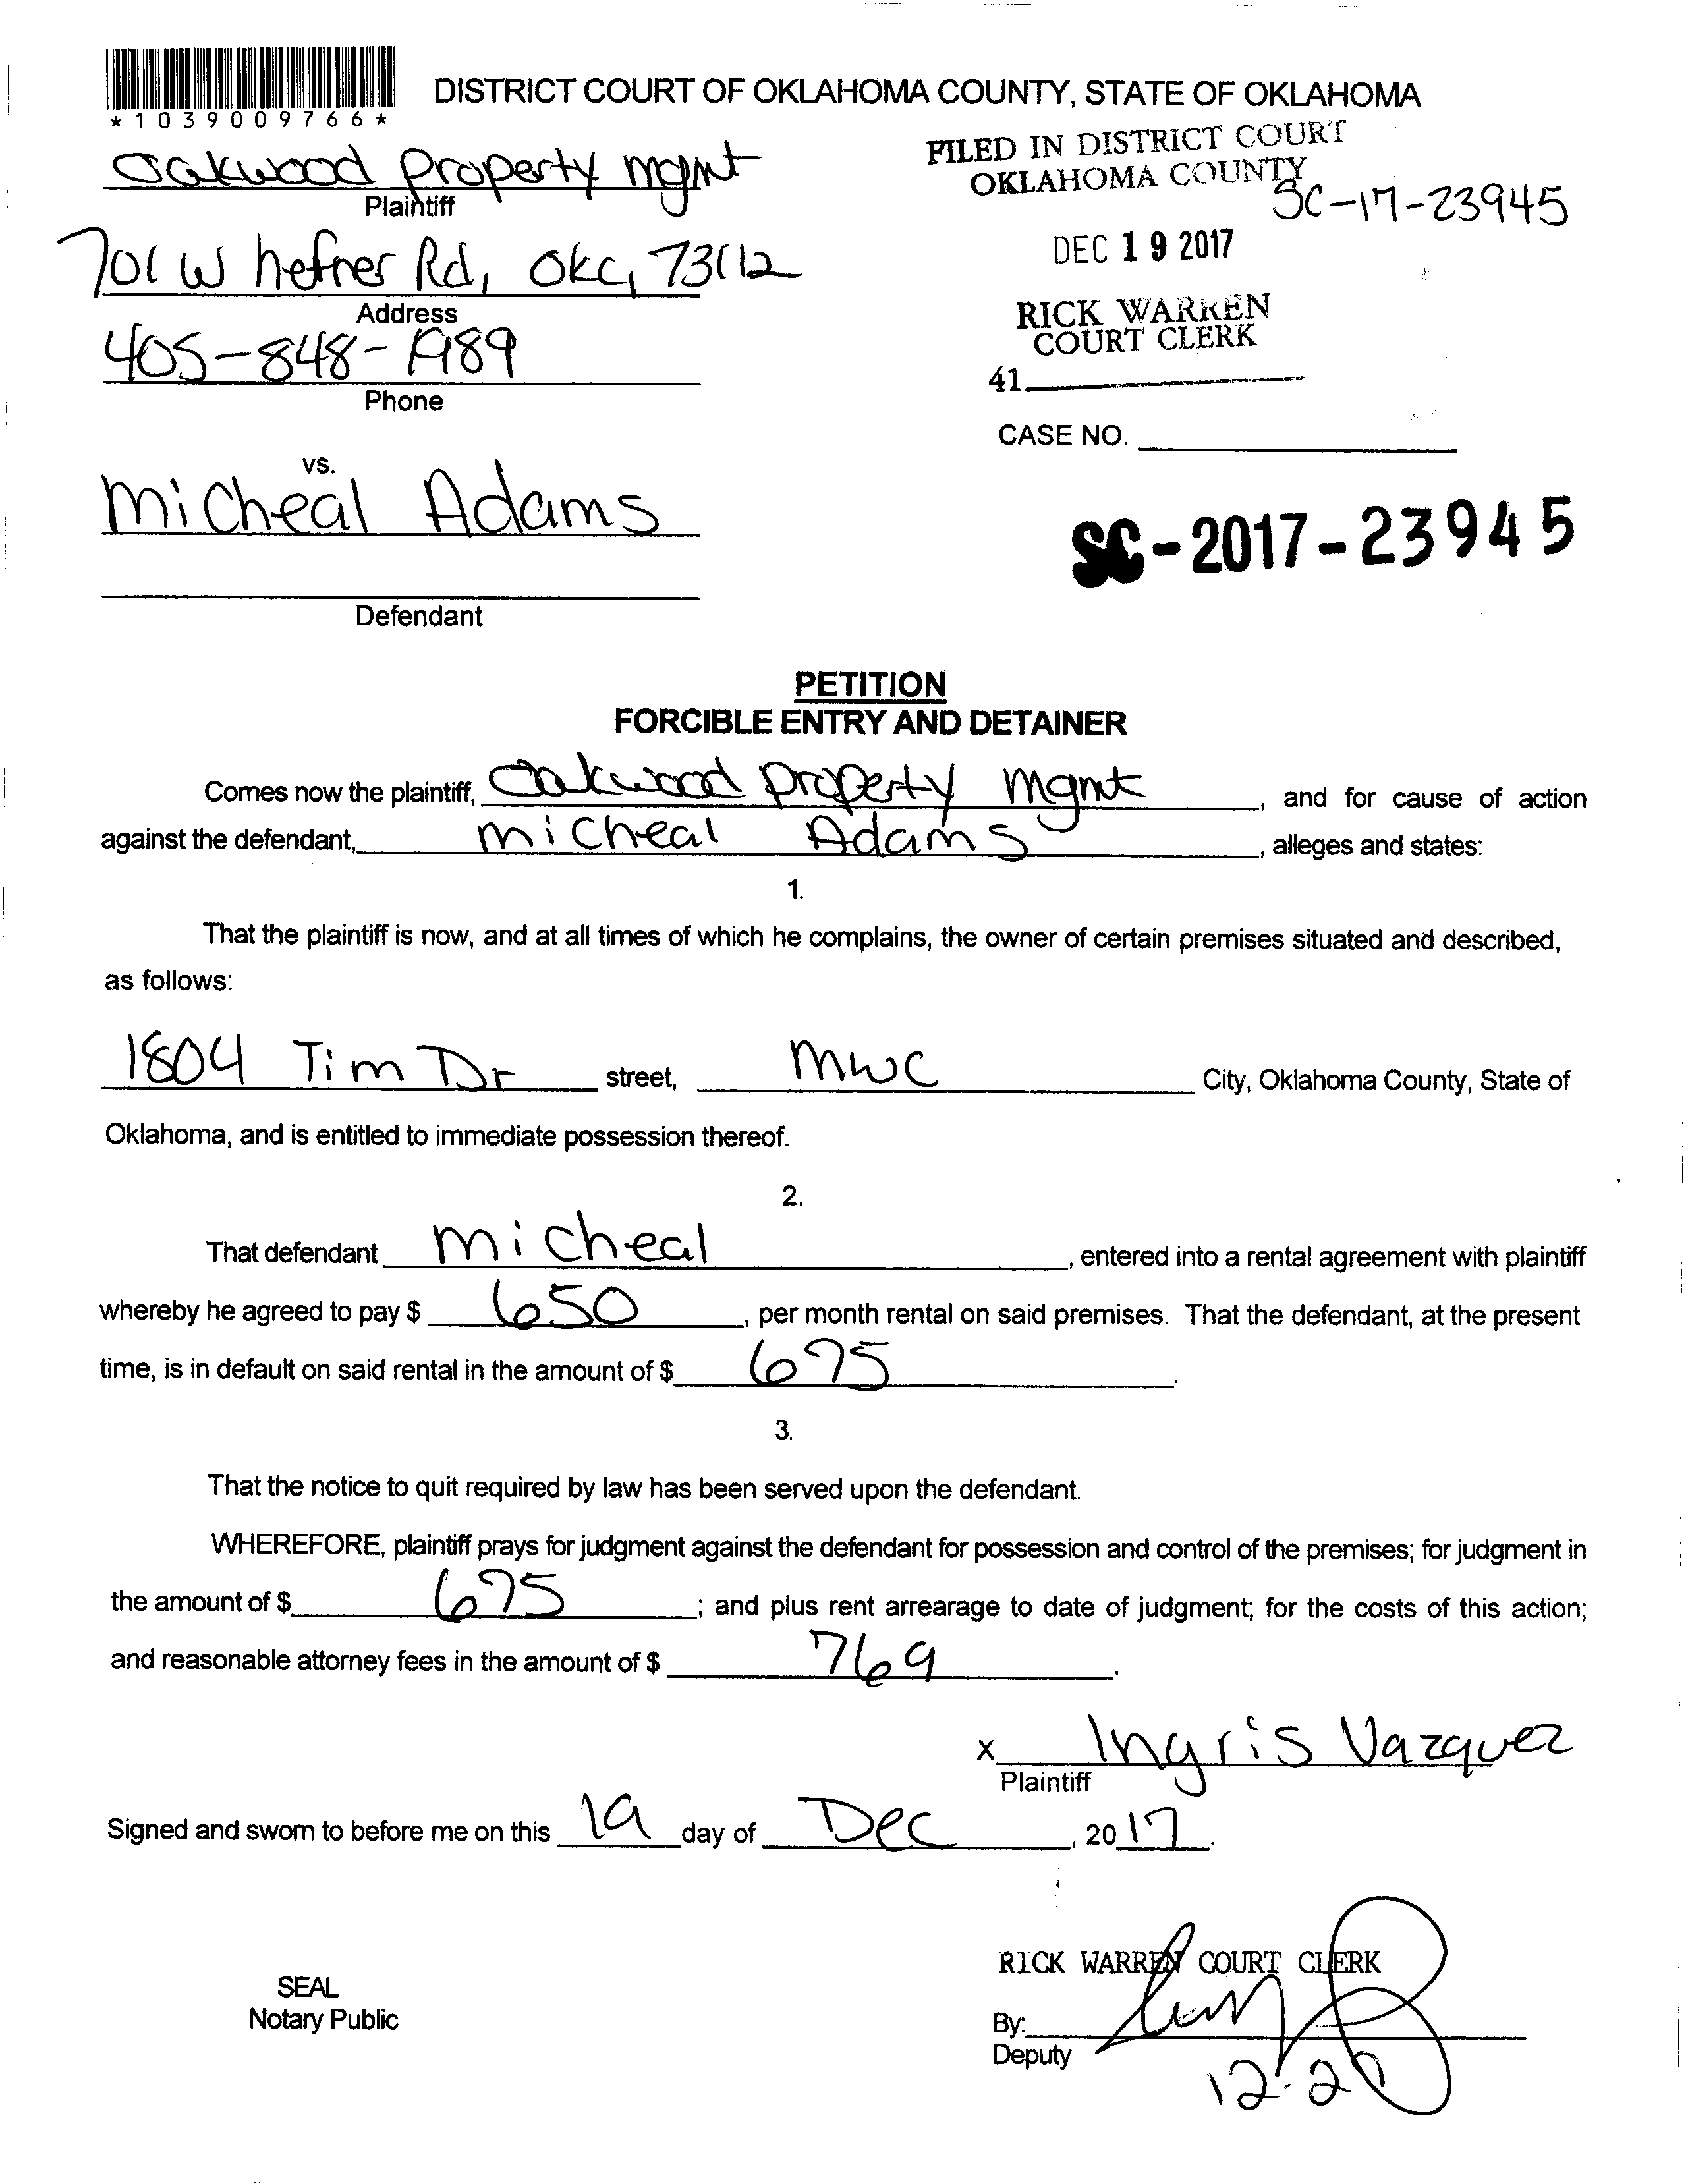 *1039009766*
DISTRICT COURT OF OKLAHOMA COUNTY, STATE OF OKLAHOMA
Oakwood Property mgmt
Plaintiff
FILED IN DISTRICT COURT
OKLAHOMA COUNTY
SC-17-23945
DEC 19 2017
701 W hefner Rd, OKC, 73112
Address
RICK WARREN
COURT CLERK
405-848-1989
Phone
41
CASE NO.
vs.
Micheal Adams
SC-2017-23945
Defendant
PETITION
FORCIBLE ENTRY AND DETAINER
Comes now the plaintiff, Oakwood Property Mgmt, and for cause of action
against the defendant, Micheal Adams, alleges and states:
1.
That the plaintiff is now, and at all times of which he complains, the owner of certain premises situated and described,
as follows:
1804 Tim Dr street, MWC City, Oklahoma County, State of
Oklahoma, and is entitled to immediate possession thereof.
2.
That defendant Micheal, entered into a rental agreement with plaintiff
whereby he agreed to pay $ 650, per month rental on said premises. That the defendant, at the present
time, is in default on said rental in the amount of $ 675.
3.
That the notice to quit required by law has been served upon the defendant.
WHEREFORE, plaintiff prays for judgment against the defendant for possession and control of the premises; for judgment in
the amount of $ 675; and plus rent arrearage to date of judgment; for the costs of this action;
and reasonable attorney fees in the amount of $ 769.
X Ingris Vazquez
Plaintiff
Signed and sworn to before me on this 19 day of Dec, 2017.
RICK WARREN COURT CLERK
SEAL
Notary Public
By:
Deputy
12-20